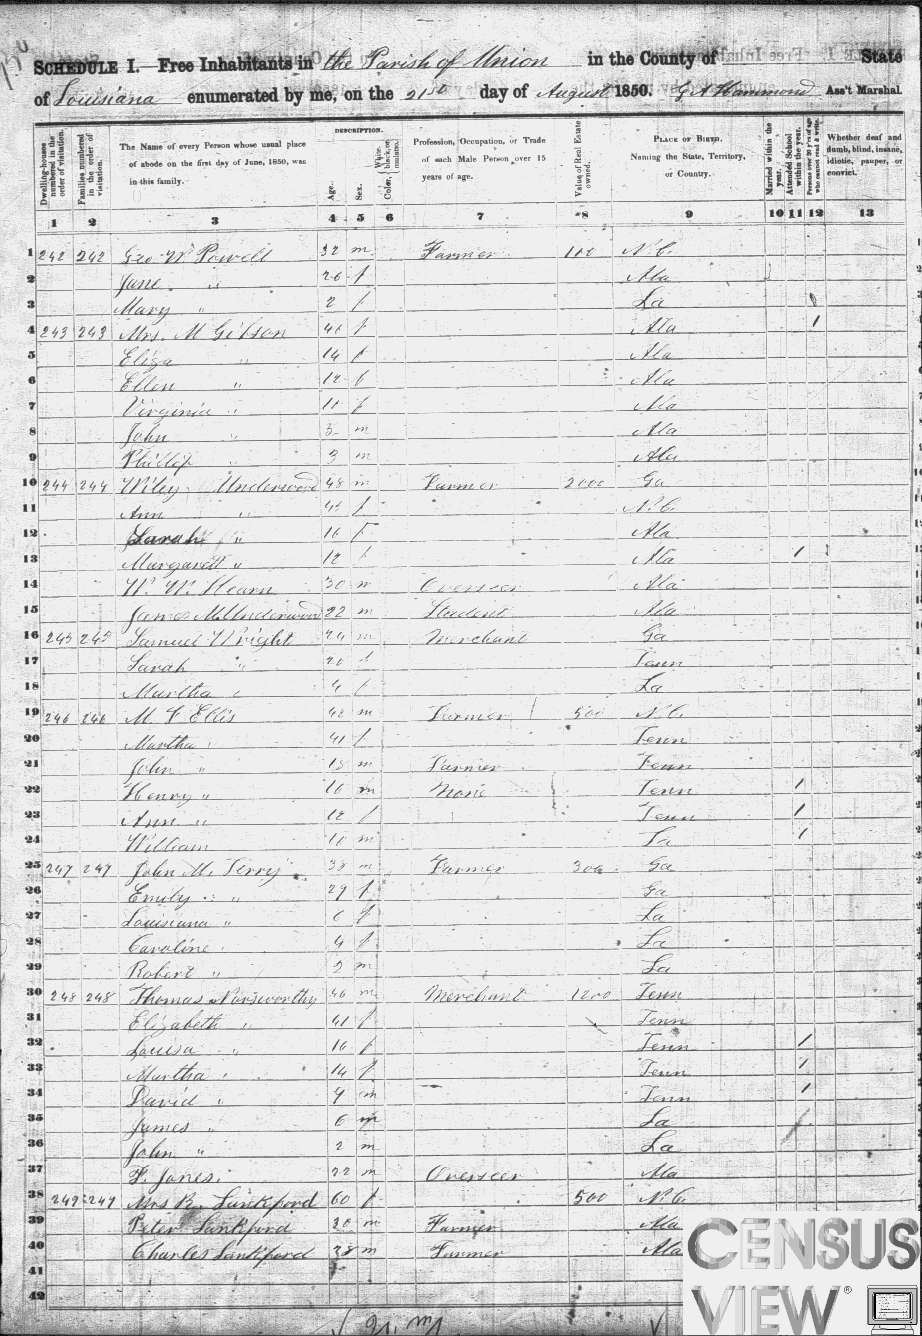 SCHEDULE I.—Free Inhabitants in the Parish of Union in the County of State
of Louisiana enumerated by me, on the 21st day of August 1850. Ass't Marshal.
Dwelling-houses numbered in the order of visitation.
Families numbered in the order of visitation.
The Name of every Person whose usual place of abode on the first day of June, 1850, was in this family.
DESCRIPTION.
Age.
Sex.
Color, White, black, or mulatto.
Profession, Occupation, or Trade of each Male Person over 15 years of age.
Value of Real Estate owned.
PLACE OF BIRTH. Naming the State, Territory, or Country.
Married within the year.
Attended School within the year.
Persons over 20 y'rs of age who cannot read & write.
Whether deaf and dumb, blind, insane, idiotic, pauper, or convict.
1 2 3 4 5 6 7 8 9 10 11 12 13
1 242 242 Geo W Powell 32 m Farmer 100 N.C.
2 Jane " 26 f Ala
3 Mary " 2 f La
4 243 243 Mrs. M Gibson f Ala 1
5 Eliza " 14 f Ala
6 Ellen " 12 f Ala
7 Virginia " f Ala
8 John " m Ala
9 Phillip " 3 m Ala
10 244 244 Wiley Underwood 48 m Farmer 2000 Ga
11 Ann " f N.C.
12 Sarah " 16 f Ala
13 Margarett " 12 f Ala 1
14 W. W. Hearn 30 m Overseer Ala
15 James M. Underwood 22 m Student Ala
16 245 245 Samuel Wright m Merchant Ga
17 Sarah " 20 f Tenn
18 Martha " 4 f La
19 246 246 M F Ellis 42 m Farmer 500 N.C.
20 Martha " 41 f Tenn
21 John " m Farmer Tenn
22 Henry " m None Tenn 1
23 Ann " 12 f Tenn 1
24 William 10 m La 1
25 247 247 John M. Terry 38 m Farmer 300 Ga
26 Emily " 29 f Ga
27 Louisiana " 6 f La
28 Caroline " 4 f La
29 Robert " m La
30 248 248 Thomas Norsworthy 46 m Merchant 1200 Tenn
31 Elizabeth " 41 f Tenn
32 Louisa " 16 f Tenn 1
33 Martha " 14 f Tenn 1
34 David " 9 m Tenn 1
35 James " 6 m La
36 John " 2 m La
37 F. Jones. 22 m Overseer Ala
38 249 249 Mrs R. Lankford 60 f 500 N.C.
39 Peter Lankford 30 m Farmer Ala
40 Charles Lankford 28 m Farmer Ala
41
42
CENSUS
VIEW®